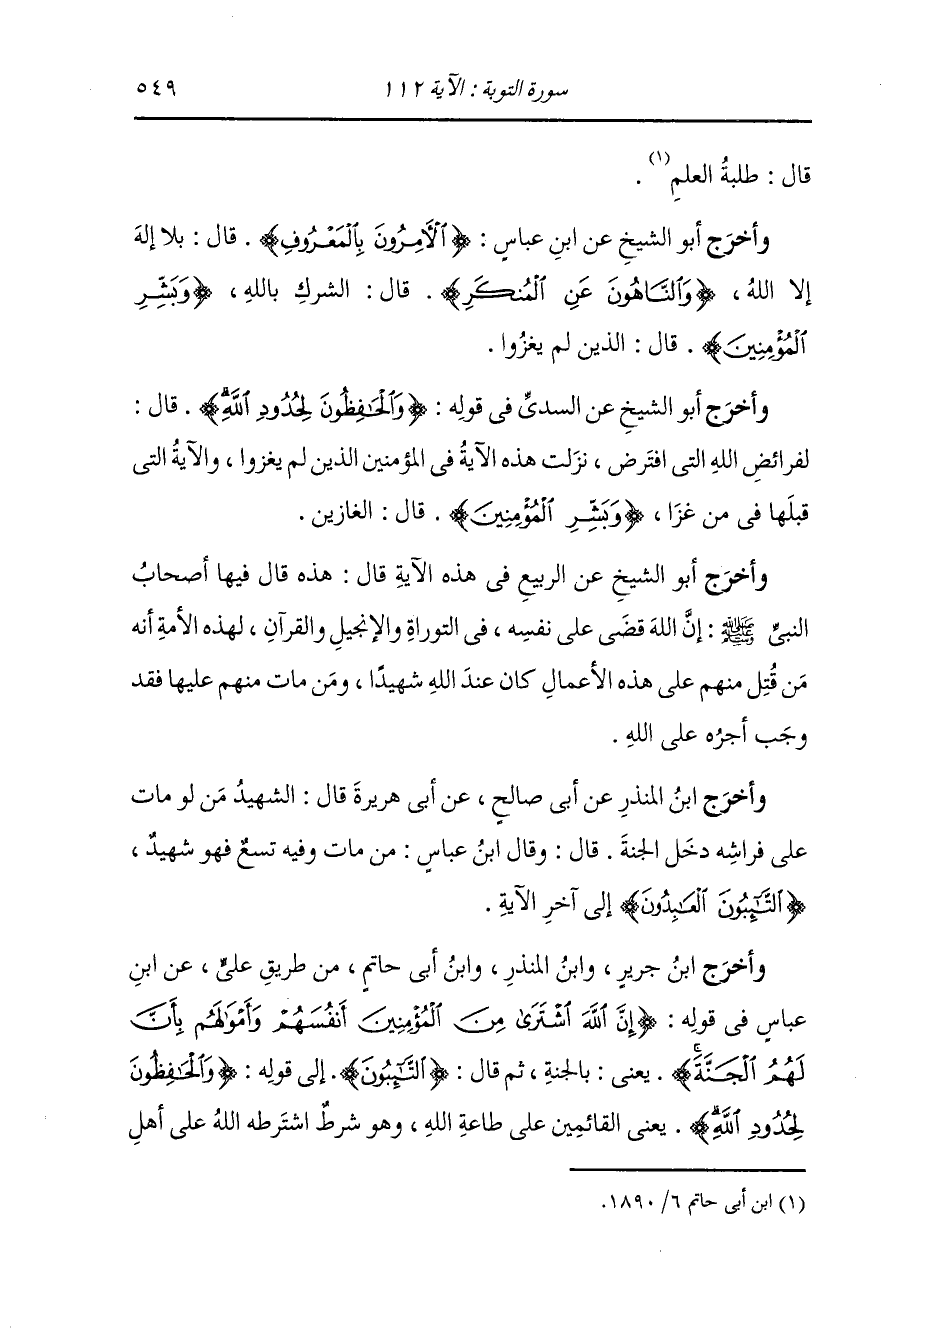 سورة التوبة : الآية ١١٢
٥٤٩
قال : طلبةُ العلمِ(١) .
وأخرَج أبو الشيخِ عن ابنِ عباسٍ : ﴿ٱلْآمِرُونَ بِٱلْمَعْرُوفِ﴾ . قال : بلا إلهَ
إلا اللهُ ، ﴿وَٱلنَّاهُونَ عَنِ ٱلْمُنكَرِ﴾ . قال : الشركِ باللهِ ، ﴿وَبَشِّرِ
ٱلْمُؤْمِنِينَ﴾ . قال : الذين لم يغزُوا .
وأخرَج أبو الشيخِ عن السدىِّ فى قولِه : ﴿وَٱلْحَٰفِظُونَ لِحُدُودِ ٱللَّهِۗ﴾ . قال :
لفرائضِ اللهِ التى افتَرض ، نزَلت هذه الآيةُ فى المؤمنين الذين لم يغزوا ، والآيةُ التى
قبلَها فى من غزَا ، ﴿وَبَشِّرِ ٱلْمُؤْمِنِينَ﴾ . قال : الغازين .
وأخرَج أبو الشيخِ عن الربيعِ فى هذه الآيةِ قال : هذه قال فيها أصحابُ
النبىِّ ﷺ : إنَّ اللهَ قضَى على نفسِه ، فى التوراةِ والإنجيلِ والقرآنِ ، لهذه الأمةِ أنه
مَن قُتِل منهم على هذه الأعمالِ كان عندَ اللهِ شهيدًا ، ومَن مات منهم عليها فقد
وجَب أجرُه على اللهِ .
وأخرَج ابنُ المنذرِ عن أبى صالحٍ ، عن أبى هريرةَ قال : الشهيدُ مَن لو مات
على فراشِه دخَل الجنةَ . قال : وقال ابنُ عباسٍ : من مات وفيه تسعٌ فهو شهيدٌ ،
﴿ٱلتَّٰٓئِبُونَ ٱلْعَٰبِدُونَ﴾ إلى آخرِ الآيةِ .
وأخرَج ابنُ جريرٍ ، وابنُ المنذرِ ، وابنُ أبى حاتمٍ ، من طريقِ علىٍّ ، عن ابنِ
عباسٍ فى قولِه : ﴿إِنَّ ٱللَّهَ ٱشْتَرَىٰ مِنَ ٱلْمُؤْمِنِينَ أَنفُسَهُمْ وَأَمْوَٰلَهُم بِأَنَّ
لَهُمُ ٱلْجَنَّةَۚ﴾ . يعنى : بالجنةِ ، ثم قال : ﴿ٱلتَّٰٓئِبُونَ﴾. إلى قولِه : ﴿وَٱلْحَٰفِظُونَ
لِحُدُودِ ٱللَّهِۗ﴾ . يعنى القائمِين على طاعةِ اللهِ ، وهو شرطٌ اشترَطه اللهُ على أهلِ
(١) ابن أبى حاتم ٦/ ١٨٩٠.